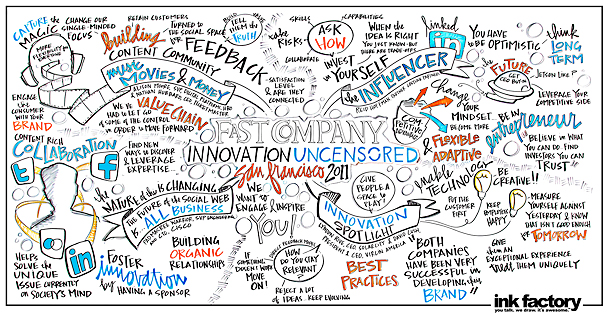 CAPTURE the MAGIC
CHANGE OUR
SINGLE-MINDED
FOCUS
RETAIN CUSTOMERS
building
CONTENT COMMUNITY
TURNED TO
THE SOCIAL SPACE
for
FEEDBACK
TELL THEM
the TRUTH
SKILLS
CAPABILITIES
take
RISKS
ASK
HOW
COLLABORATE
INVEST
in YOURSELF
WHEN the
IDEA IS RIGHT
YOU JUST KNOW - BUT
THERE ARE TRADE-OFFS
linked in
YOU HAVE
to BE OPTIMISTIC
think
LONG
TERM
music
MOVIES & MONEY
SATISFACTION
LEVEL
ARE THEY
CONNECTED
the INFLUENCER
the
FUTURE
JETSON LIKE?
LEVERAGE YOUR
COMPETITIVE SIDE
ENGAGE
the
CONSUMER
WITH YOUR
BRAND
WE'VE
HAD to LET GO
of SOME of the CONTROL
in ORDER to MOVE FORWARD
VALUE CHAIN
Change
YOUR
MINDSET.
BECOME MORE
FLEXIBLE
& ADAPTIVE
BE AN
entrepreneur
BELIEVE in WHAT
YOU CAN DO. FIND
INVESTORS YOU CAN
TRUST
CONTENT RICH
COLLABORATION
FIND NEW
WAYS to DISCOVER
& LEVERAGE
EXPERTISE
FAST COMPANY
INNOVATION UNCENSORED
San francisco 2011
enable
TECHNOLOGY
BE CREATIVE!!
the NATURE of the BIZ
IS CHANGING
THE FUTURE of the SOCIAL WEB
IS ALL BUSINESS
CTO, CISCO
WE
WANT to
ENGAGE & INSPIRE
YOU!
GIVE
PEOPLE A
SPACE to
PLAY
INNOVATION
SPOTLIGHT
PUT THE
CUSTOMER
FIRST
KEEP
EMPLOYEES
HAPPY
MEASURE
YOURSELF AGAINST
YESTERDAY & KNOW
THAT ISN'T GOOD ENOUGH
for TOMORROW
HELPS
SOLVE the
UNIQUE
ISSUE CURRENTLY
on SOCIETY'S MIND
FOSTER
innovation
by HAVING A SPONSOR
BUILDING
ORGANIC
RELATIONSHIPS
IF
SOMETHING
DOESN'T WORK
MOVE
ON!
HOW
DO YOU STAY
RELEVANT
REJECT A LOT
of IDEAS. KEEP EVOLVING
BEST
PRACTICES
"BOTH
COMPANIES
HAVE BEEN VERY
SUCCESSFUL in
DEVELOPING their
BRAND"
GIVE
them AN
EXCEPTIONAL EXPERIENCE
TREAT THEM UNIQUELY
ink factory
you talk. we draw. it's awesome.